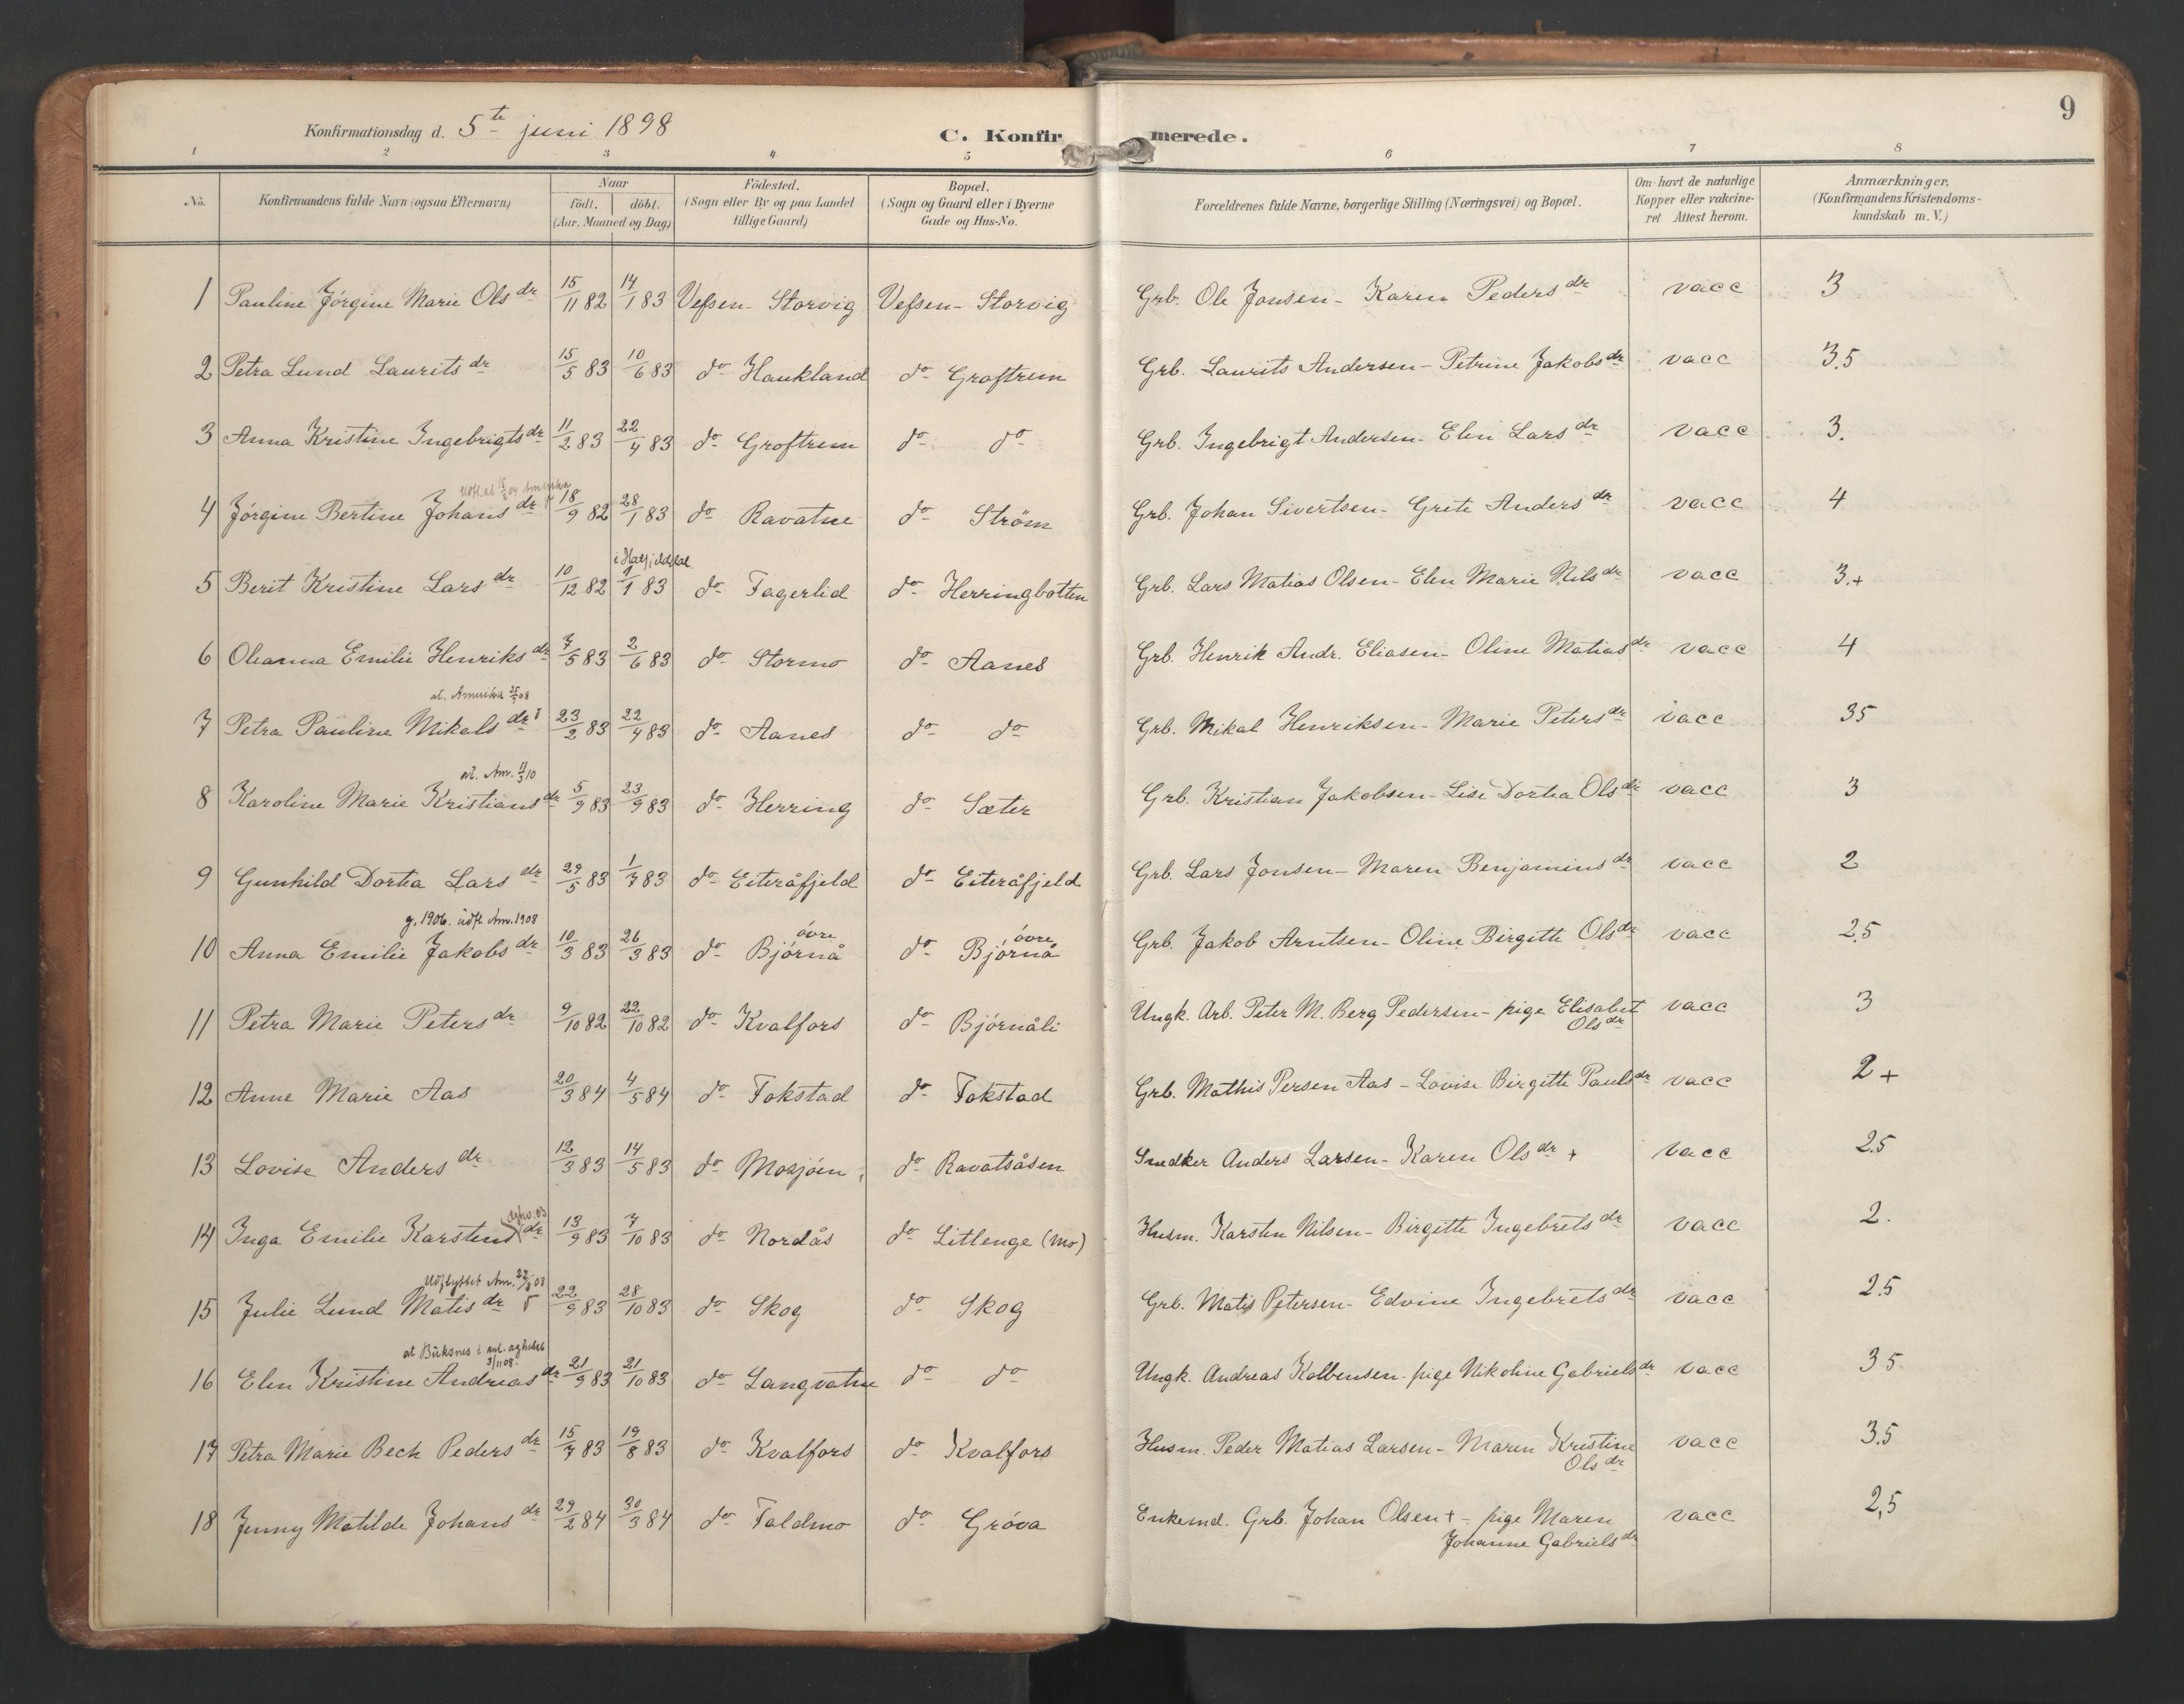 9
Konfirmationsdag d. 5te juni 1898
C. Konfirmerede.
1 2 3 4 5 6 7 8
No. Konfirmandens fulde Navn (ogsaa Efternavn) Naar födt. döbt. (Aar, Maaned og Dag) Födested. (Sogn eller By og paa Landet tillige Gaard) Bopæl. (Sogn og Gaard eller i Byerne Gade og Hus-No. Forældrenes fulde Navne, borgerlige Stilling (Næringsvei) og Bopæl. Om havt de naturlige Kopper eller vakcineret. Attest herom. Anmærkninger, (Konfirmandens Kristendomskundskab m. V.)
1 Pauline Jörgine Marie Olsdr 15/11 82 14/1 83 Vefsen- Storvig Vefsen- Storvig Grb. Ole Jonsen- Karen Pedersdr vacc 3
2 Petra Lund Lauritsdr 15/5 83 10/6 83 do Haukland do Groftrem Grb. Laurits Andersen- Petrine Jakobsdr vacc 3.5
3 Anna Kristine Ingebrigtsdr 11/2 83 22/4 83 do Groftrem do do Grb. Ingebrigt Andersen- Elen Larsdr vacc 3.
Amerika
4 Jörgine Bertine Johansdr 18/9 82 28/1 83 do Ravatne do Ström Grb. Johan Sivertsen- Grete Andersdr vacc 4
i Hatfjelddal
5 Berit Kristine Larsdr 10/12 82 1/1 83 do Fagerlid do Herringbotten Grb. Lars Matias Olsen- Elen Marie Nilsdr vacc 3.+
6 Oleanna Emilie Henriksdr 7/5 83 2/6 83 do Stormo do Aanes Grb. Henrik Andr. Eliasen- Oline Matiasdr vacc 4
at. Amerika 25/5 08
7 Petra Pauline Mikalsdr 23/2 83 22/4 83 do Aanes do do Grb. Mikal Henriksen- Marie Petersdr vacc 35
at. Am. 11/3 10
8 Karoline Marie Kristiansdr 5/9 83 23/9 83 do Herring do Sæter Grb. Kristian Jakobsen- Lise Dortea Olsdr vacc 3
9 Gunhild Dortea Larsdr 29/5 83 1/7 83 do Eiteråfjeld do Eiteråfjeld Grb. Lars Jonsen- Maren Benjaminsdr vacc 2
g. 1906. udfl Am. 1908
10 Anna Emilie Jakobsdr 10/3 83 26/3 83 do övre Björnå do övre Björnå Grb. Jakob Arntsen- Oline Birgitte Olsdr vacc 2.5
11 Petra Marie Petersdr 9/10 82 22/10 82 do Kvalfors do Björnåli Ungk. Arb. Peter M. Berg Pedersen- pige Elisabet vacc 3
Olsdr
12 Anne Marie Aas 20/3 84 4/5 84 do Fokstad do Fokstad Grb. Mathis Persen Aas- Lovise Birgitte Paulsdr vacc 2+
13 Lovise Andersdr 12/3 83 14/5 83 do Mosjöen, do Ravatsåsen Snedker Anders Larsen- Karen Olsdr + vacc 2.5
14 Inga Emilie Karstensdr 13/9 83 7/10 83 do Nordås do Litlenge (Mo) Husm. Karsten Nilsen- Birgitte Ingebretsdr vacc 2.
Udflyttet Am. 22/8 08
15 Julie Lund Matisdr 22/9 83 28/10 83 do Skog do Skog Grb. Matis Petersen- Edvine Ingebretsdr vacc 2.5
at Buksnes i anl.
3/11 08.
16 Elen Kristine Andreasdr 21/9 83 21/10 83 do Langvatne do do Ungk. Andreas Kolbensen- pige Nikoline Gabrielsdr vacc 35
17 Petra Marie Bech Pedersdr 15/7 83 19/8 83 do Kvalfors do Kvalfors Husm. Peder Matias Larsen- Maren Kristine vacc 3.5
Olsdr
18 Jenny Matilde Johansdr 29/2 84 30/3 84 do Foldmo do Gröva Enkemd. Grb. Johan Olsen + - pige Maren vacc 2,5
Johanne Gabrielsdr